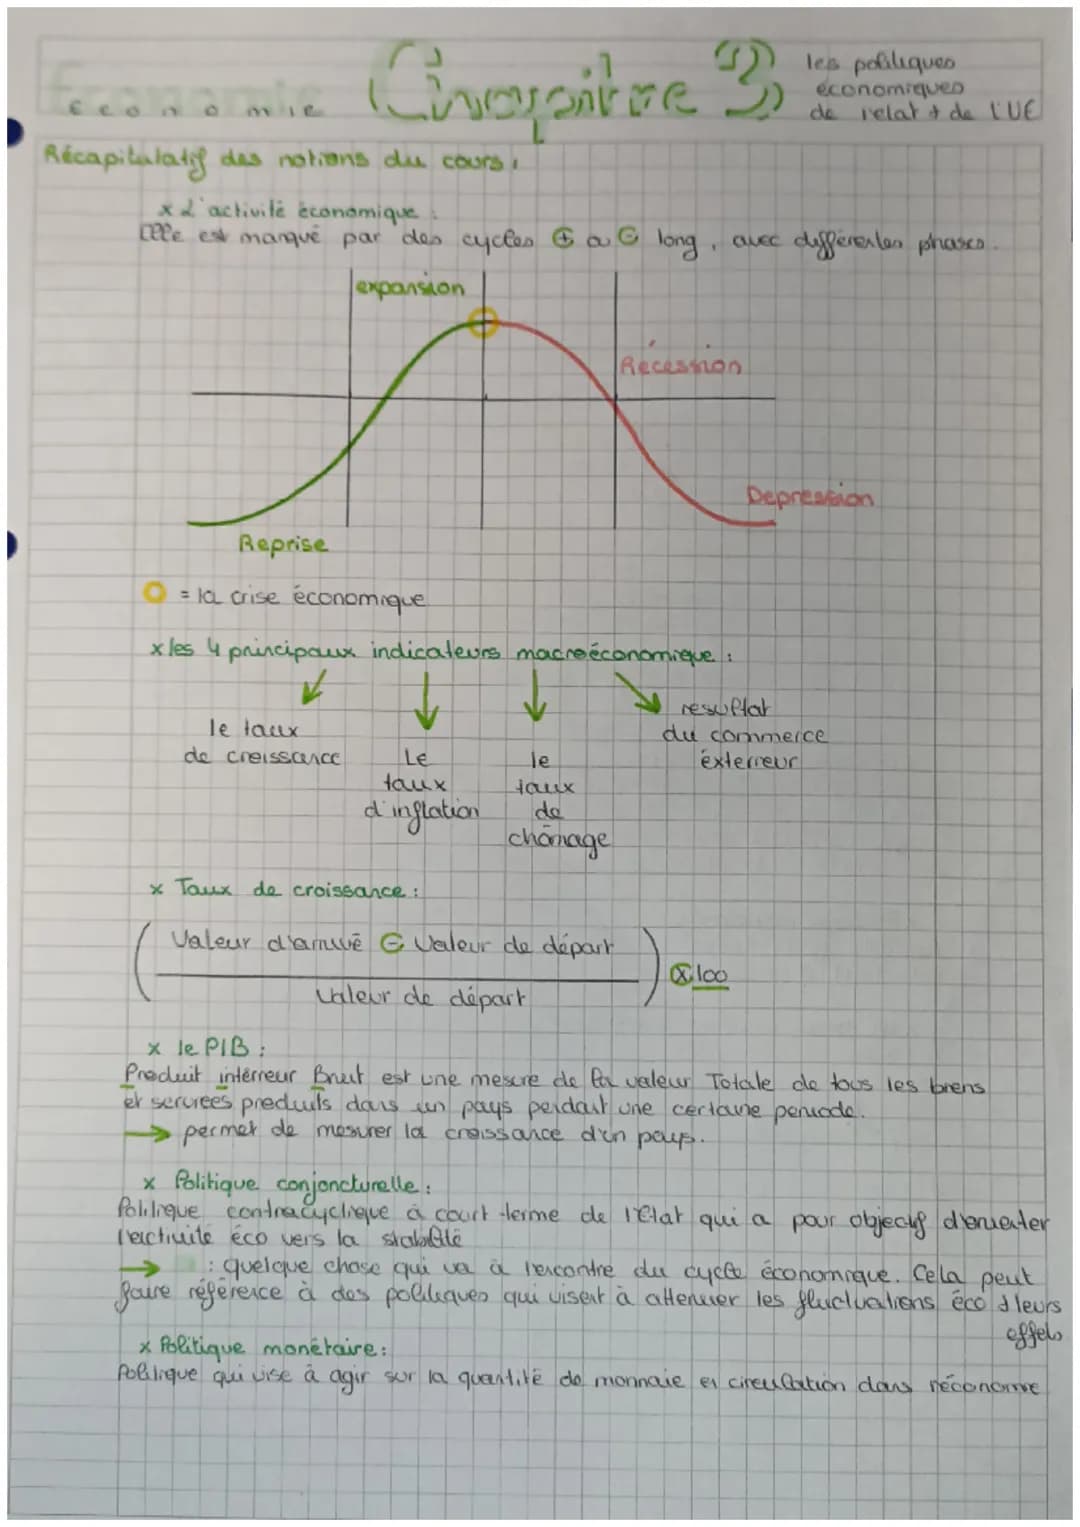 Economie
Chapitre 3
les politiques
économiques
de l'etat + de l'UE
Récapitulatif des notions du cours :
x L'activité économique :
Elle est marqué par des cycles ⊕ ou ⊖ long, avec différentes phases.
expansion
Récession
Depression
Reprise
= la crise économique
x les 4 principaux indicateurs macroéconomique :
le taux
de croissance
Le
taux
d'inflation
le
taux
de
chômage
resultat
du commerce
éxterieur
x Taux de croissance :
( Valeur d'arrivé ⊖ Valeur de départ
Valeur de départ ) ⊗ 100
x le PIB :
Produit intérieur Brut est une mesure de la valeur Totale de tous les biens
et services produits dans un pays pendant une certaine periode.
→ permet de mesurer la croissance d'un pays.
x Politique conjoncturelle :
Politique contracyclique à court terme de l'état qui a pour objectif d'orienter
l'activité éco vers la stabilité
→ : quelque chose qui va à l'encontre du cycle économique. Cela peut
faire référence à des politiques qui visent à attenuer les fluctuations éco & leurs
effets
x Politique monétaire :
Politique qui vise à agir sur la quantité de monnaie en circulation dans l'économie